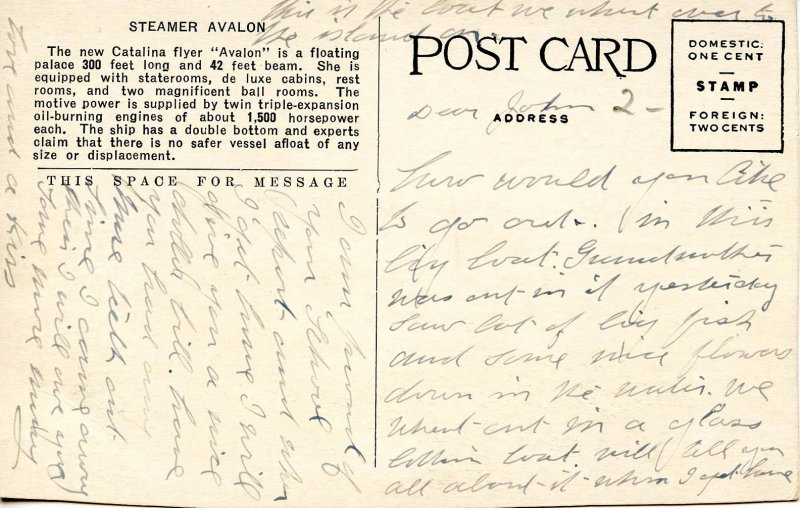 This is the boat we whent over to
the island on.
STEAMER AVALON
The new Catalina flyer "Avalon" is a floating
palace 300 feet long and 42 feet beam. She is
equipped with staterooms, de luxe cabins, rest
rooms, and two magnificent ball rooms. The
motive power is supplied by twin triple-expansion
oil-burning engines of about 1,500 horsepower
each. The ship has a double bottom and experts
claim that there is no safer vessel afloat of any
size or displacement.
THIS SPACE FOR MESSAGE
POST CARD
ADDRESS
DOMESTIC:
ONE CENT
STAMP
FOREIGN:
TWO CENTS
Dear John 2-
how would you like
to go out. (in this
big boat. Grandmother
was out in it yesterday
saw lot of big fish
and some nice flowers
down in the water. we
whent out in a glass
bottom boat. will tell you
all about it when I get home
I am proud of
your school
report and when
I get home I will
give you a nice
dollar bill.
you had some
time I come away
then I will owe you
some more money
love and a kiss